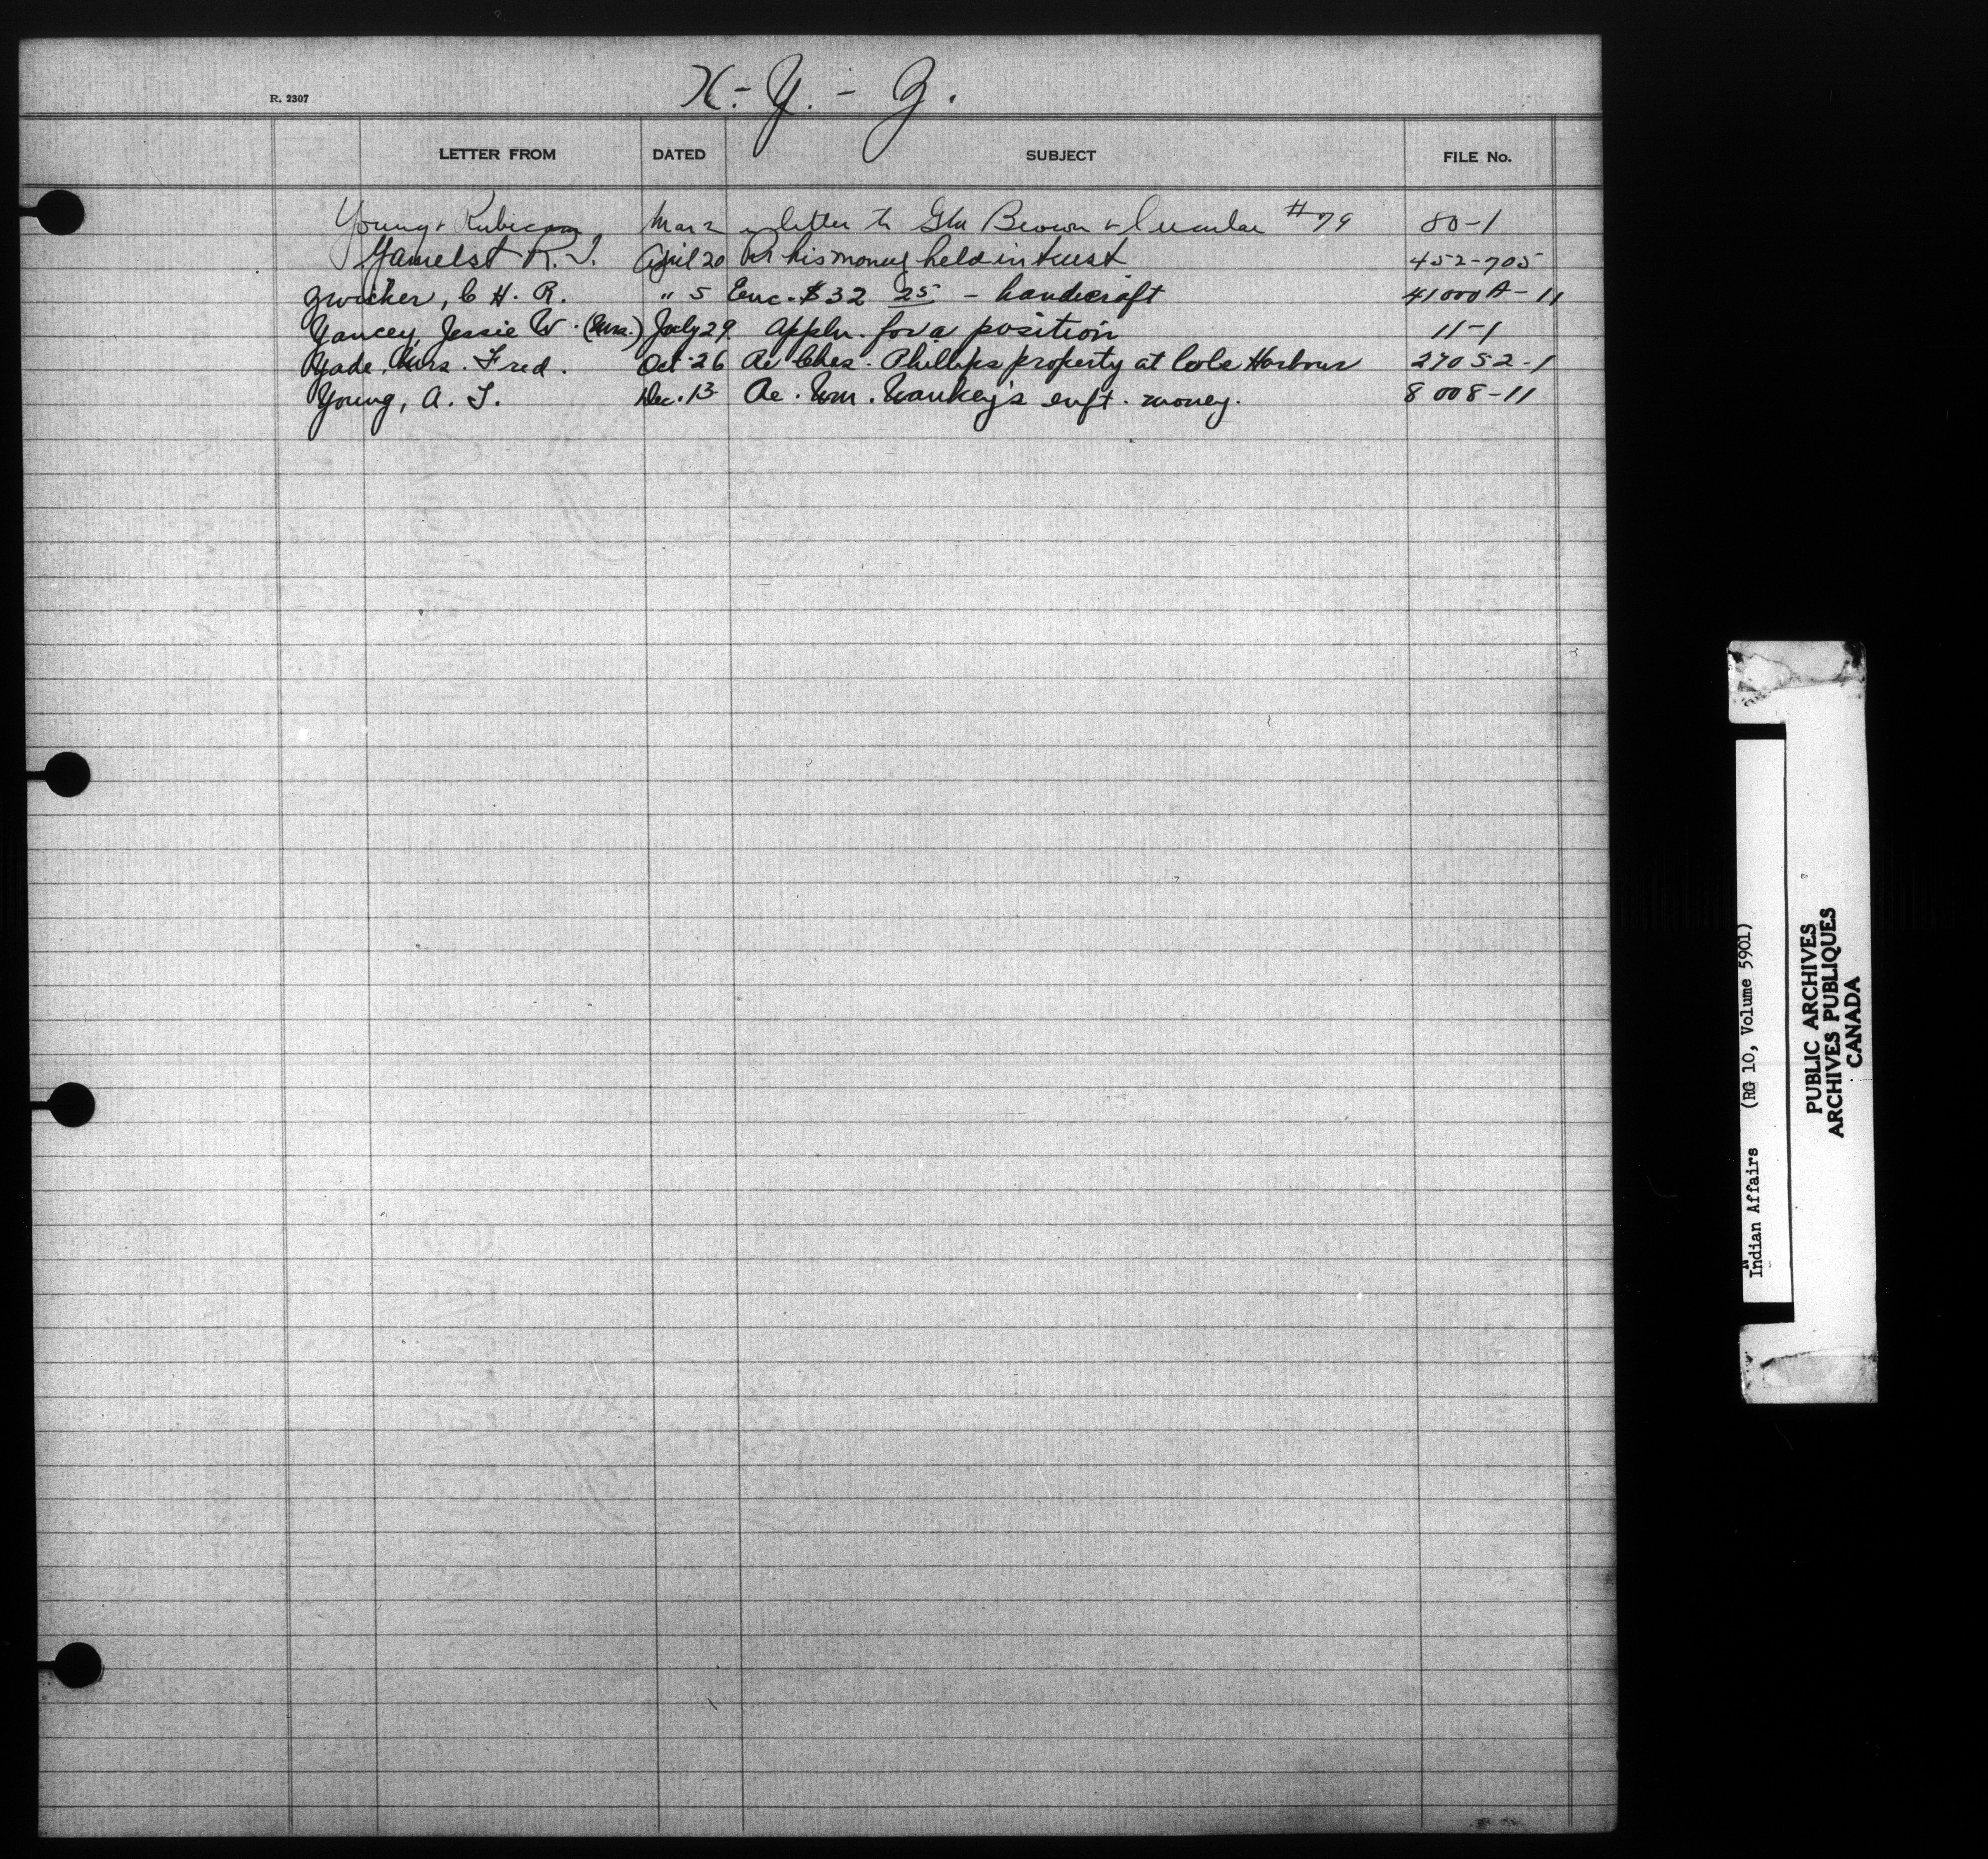 X.-Y.-Z.
R. 2307
LETTER FROM DATED SUBJECT FILE No.
Young & Rubicam Mar 2 letter to Brown & Circular #79 80-1
R. J. April 20 Re his money held in trust 452-705
Zwicker, C H. R. " 5 Enc. $32 25 - handicraft 41000A-11
Yancey, Jessie W. (Mrs.) July 29. Appln. for a position 11-1
Yade, Mrs. Fred. Oct. 26 Re Ches. Phillips property at Cole Harbour 27052-1
Young, A. T. Dec. 13 Re. Wm. enft. money. 8008-11
Indian Affairs (RG 10, Volume 5901)
PUBLIC ARCHIVES
ARCHIVES PUBLIQUES
CANADA